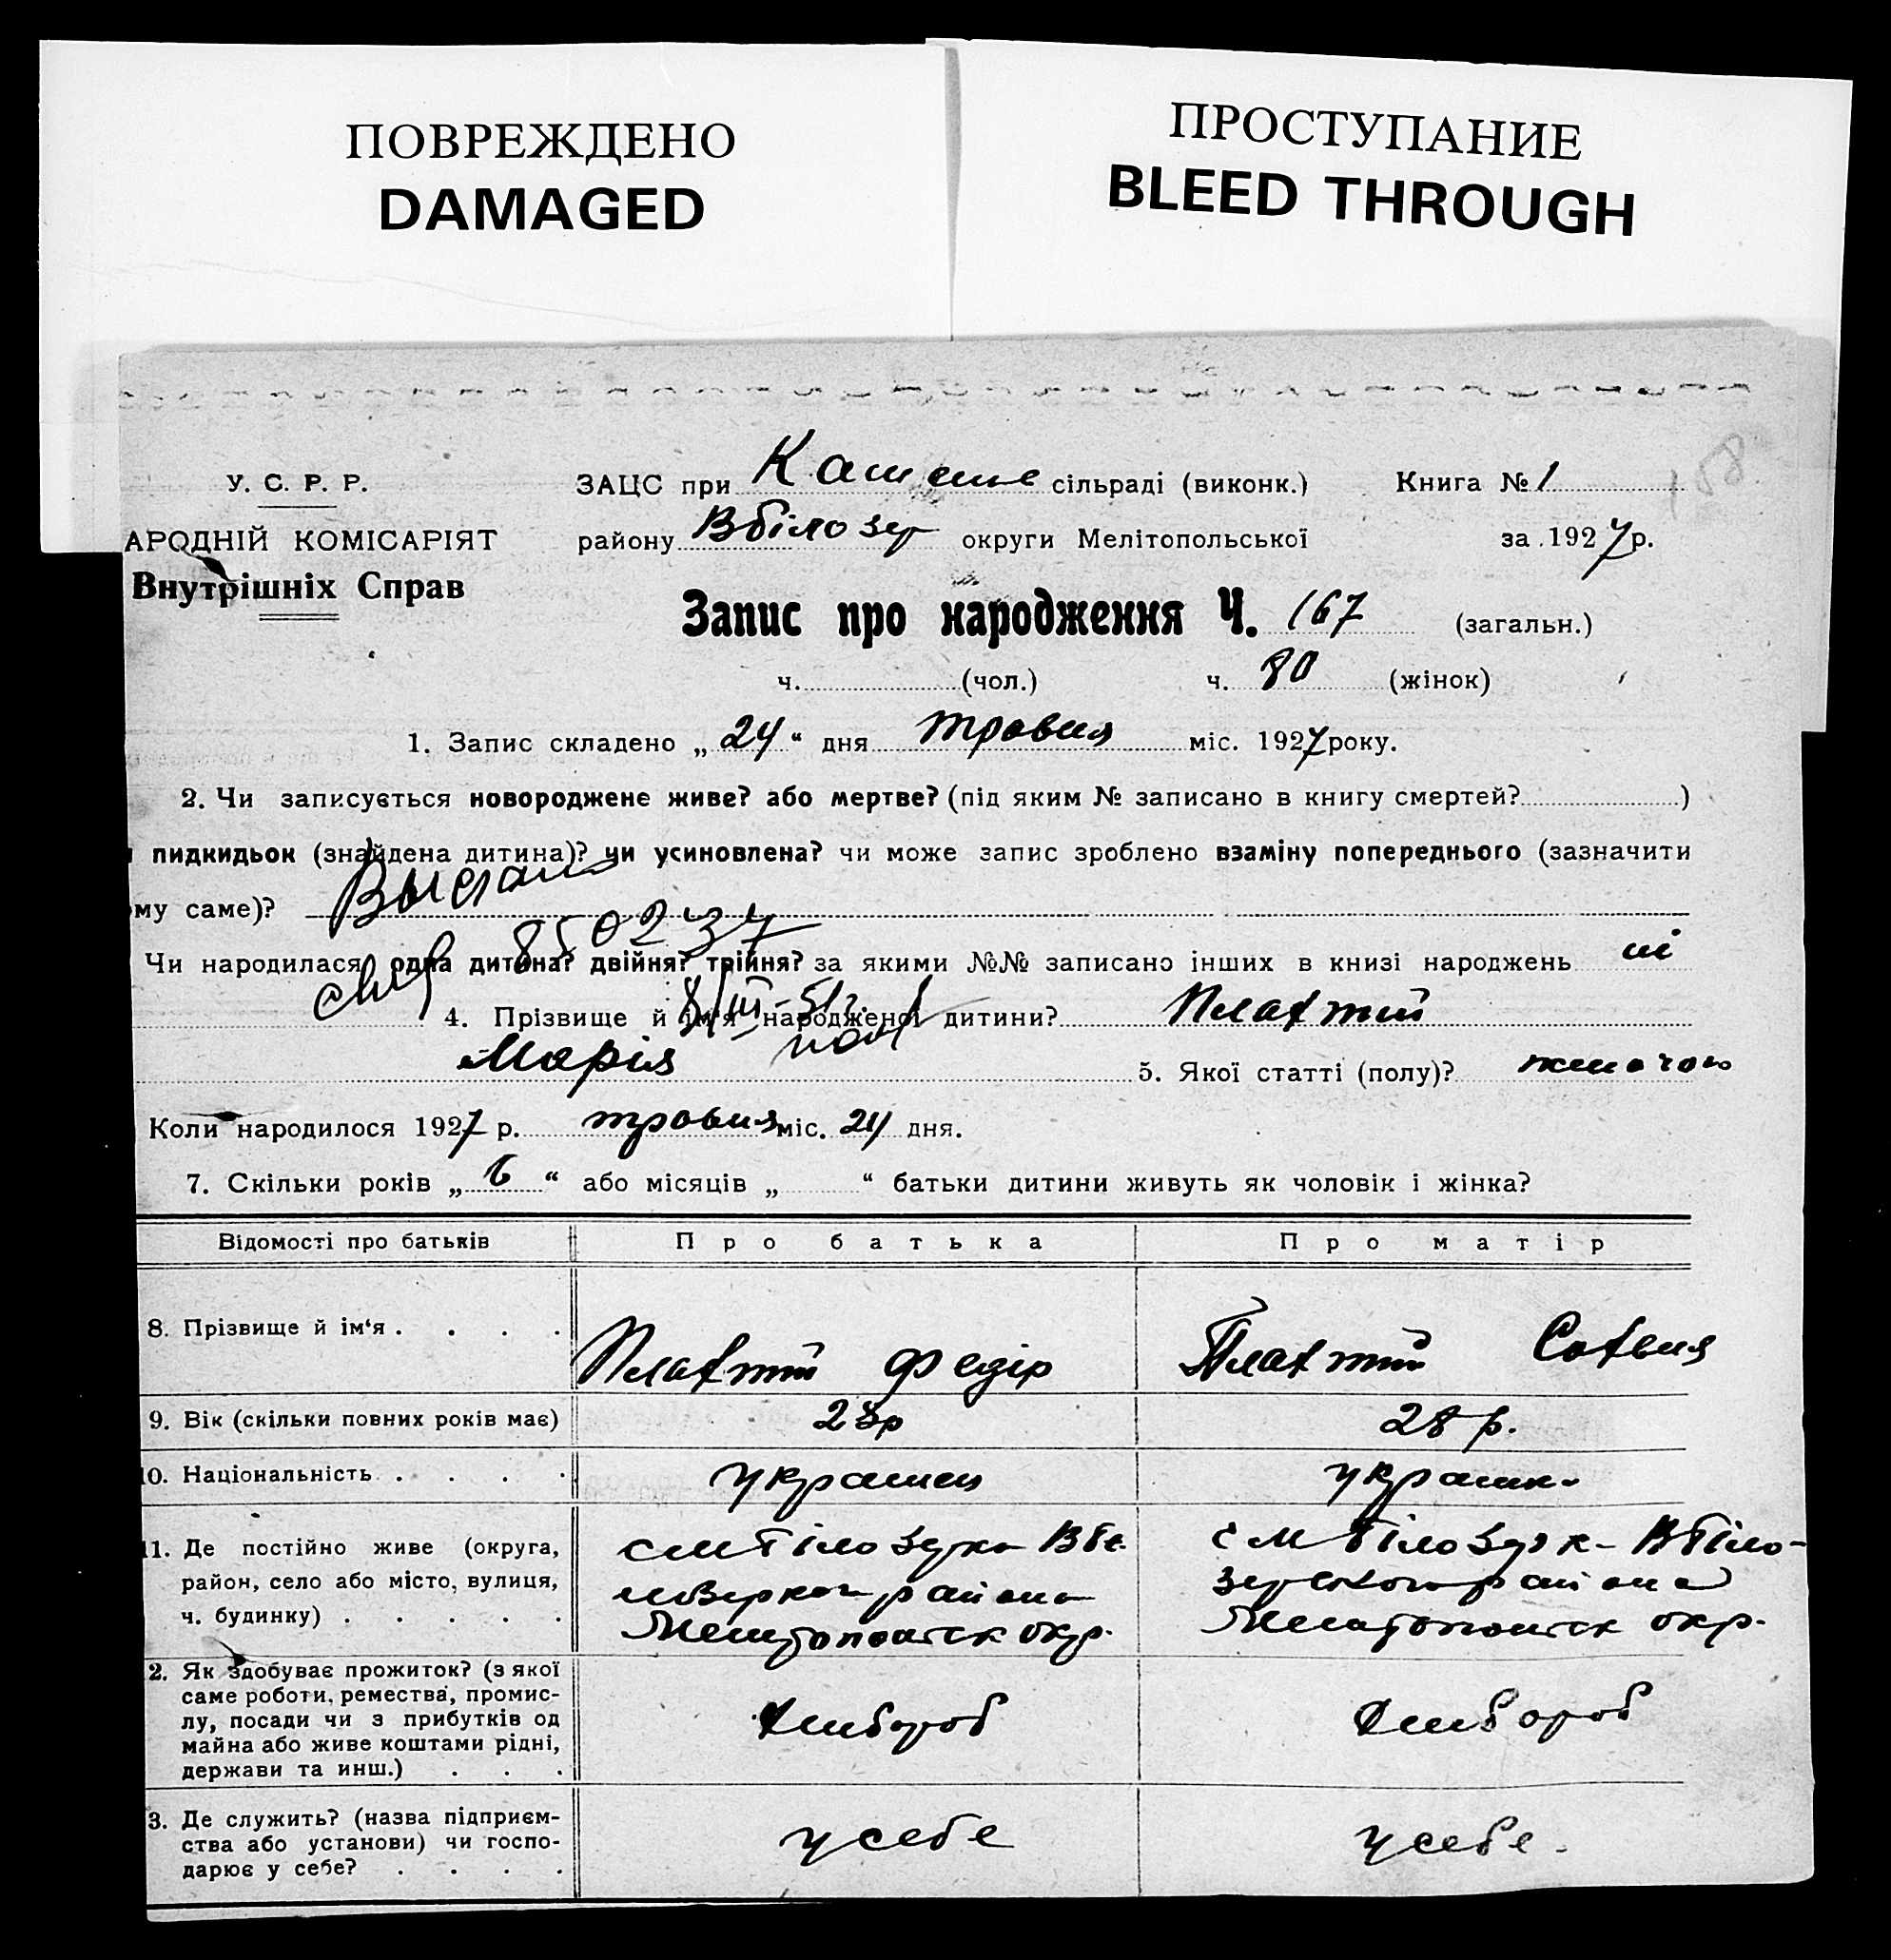 ПОВРЕЖДЕНО
DAMAGED
ПРОСТУПАНИЕ
BLEED THROUGH
158
У. С. Р. Р.
АРОДНІЙ КОМІСАРІЯТ
Внутрішніх Справ
ЗАЦС при сільраді (виконк.) Книга № 1
району Вбілозер округи Мелітопольської за 1927 р.
Запис про народження Ч. 167 (загальн.)
ч. (чол.) ч. 80 (жінок)
1. Запис складено „ 24 “ дня травня міс. 1927 року.
2. Чи записується новороджене живе? або мертве? (під яким № записано в книгу смертей? )
пидкидьок (знайдена дитина)? чи усиновлена? чи може запис зроблено взаміну попереднього (зазначити
ому саме)?
850237
Чи народилася одна дитина? двійня? трійня? за якими №№ записано інших в книзі народжень ні
8/III-51г.
4. Прізвище й ім'я народженої дитини? Плахтій
Марія 5. Якої статті (полу)?
Коли народилося 1927 р. травня міс. 24 дня.
7. Скільки років „ 6 “ або місяців „ “ батьки дитини живуть як чоловік і жінка?
Відомості про батьків Про батька Про матір
8. Прізвище й ім‘я . . . . Плахтій Федір Плахтій
9. Вік (скільки повних років має) 28 р.
10. Національність . . . . украінец украінк
11. Де постійно живе (округа,
район, село або місто, вулиця,
ч. будинку) . . . . .
2. Як здобуває прожиток? (з якої
саме роботи, ремества, промис-
лу, посади чи з прибутків од
майна або живе коштами рідні,
держави та инш.) . . .
Хлибороб Хлибороб
3. Де служить? (назва підприєм-
ства або установи) чи госпо-
дарює у себе? . . . .
у себе у себе.